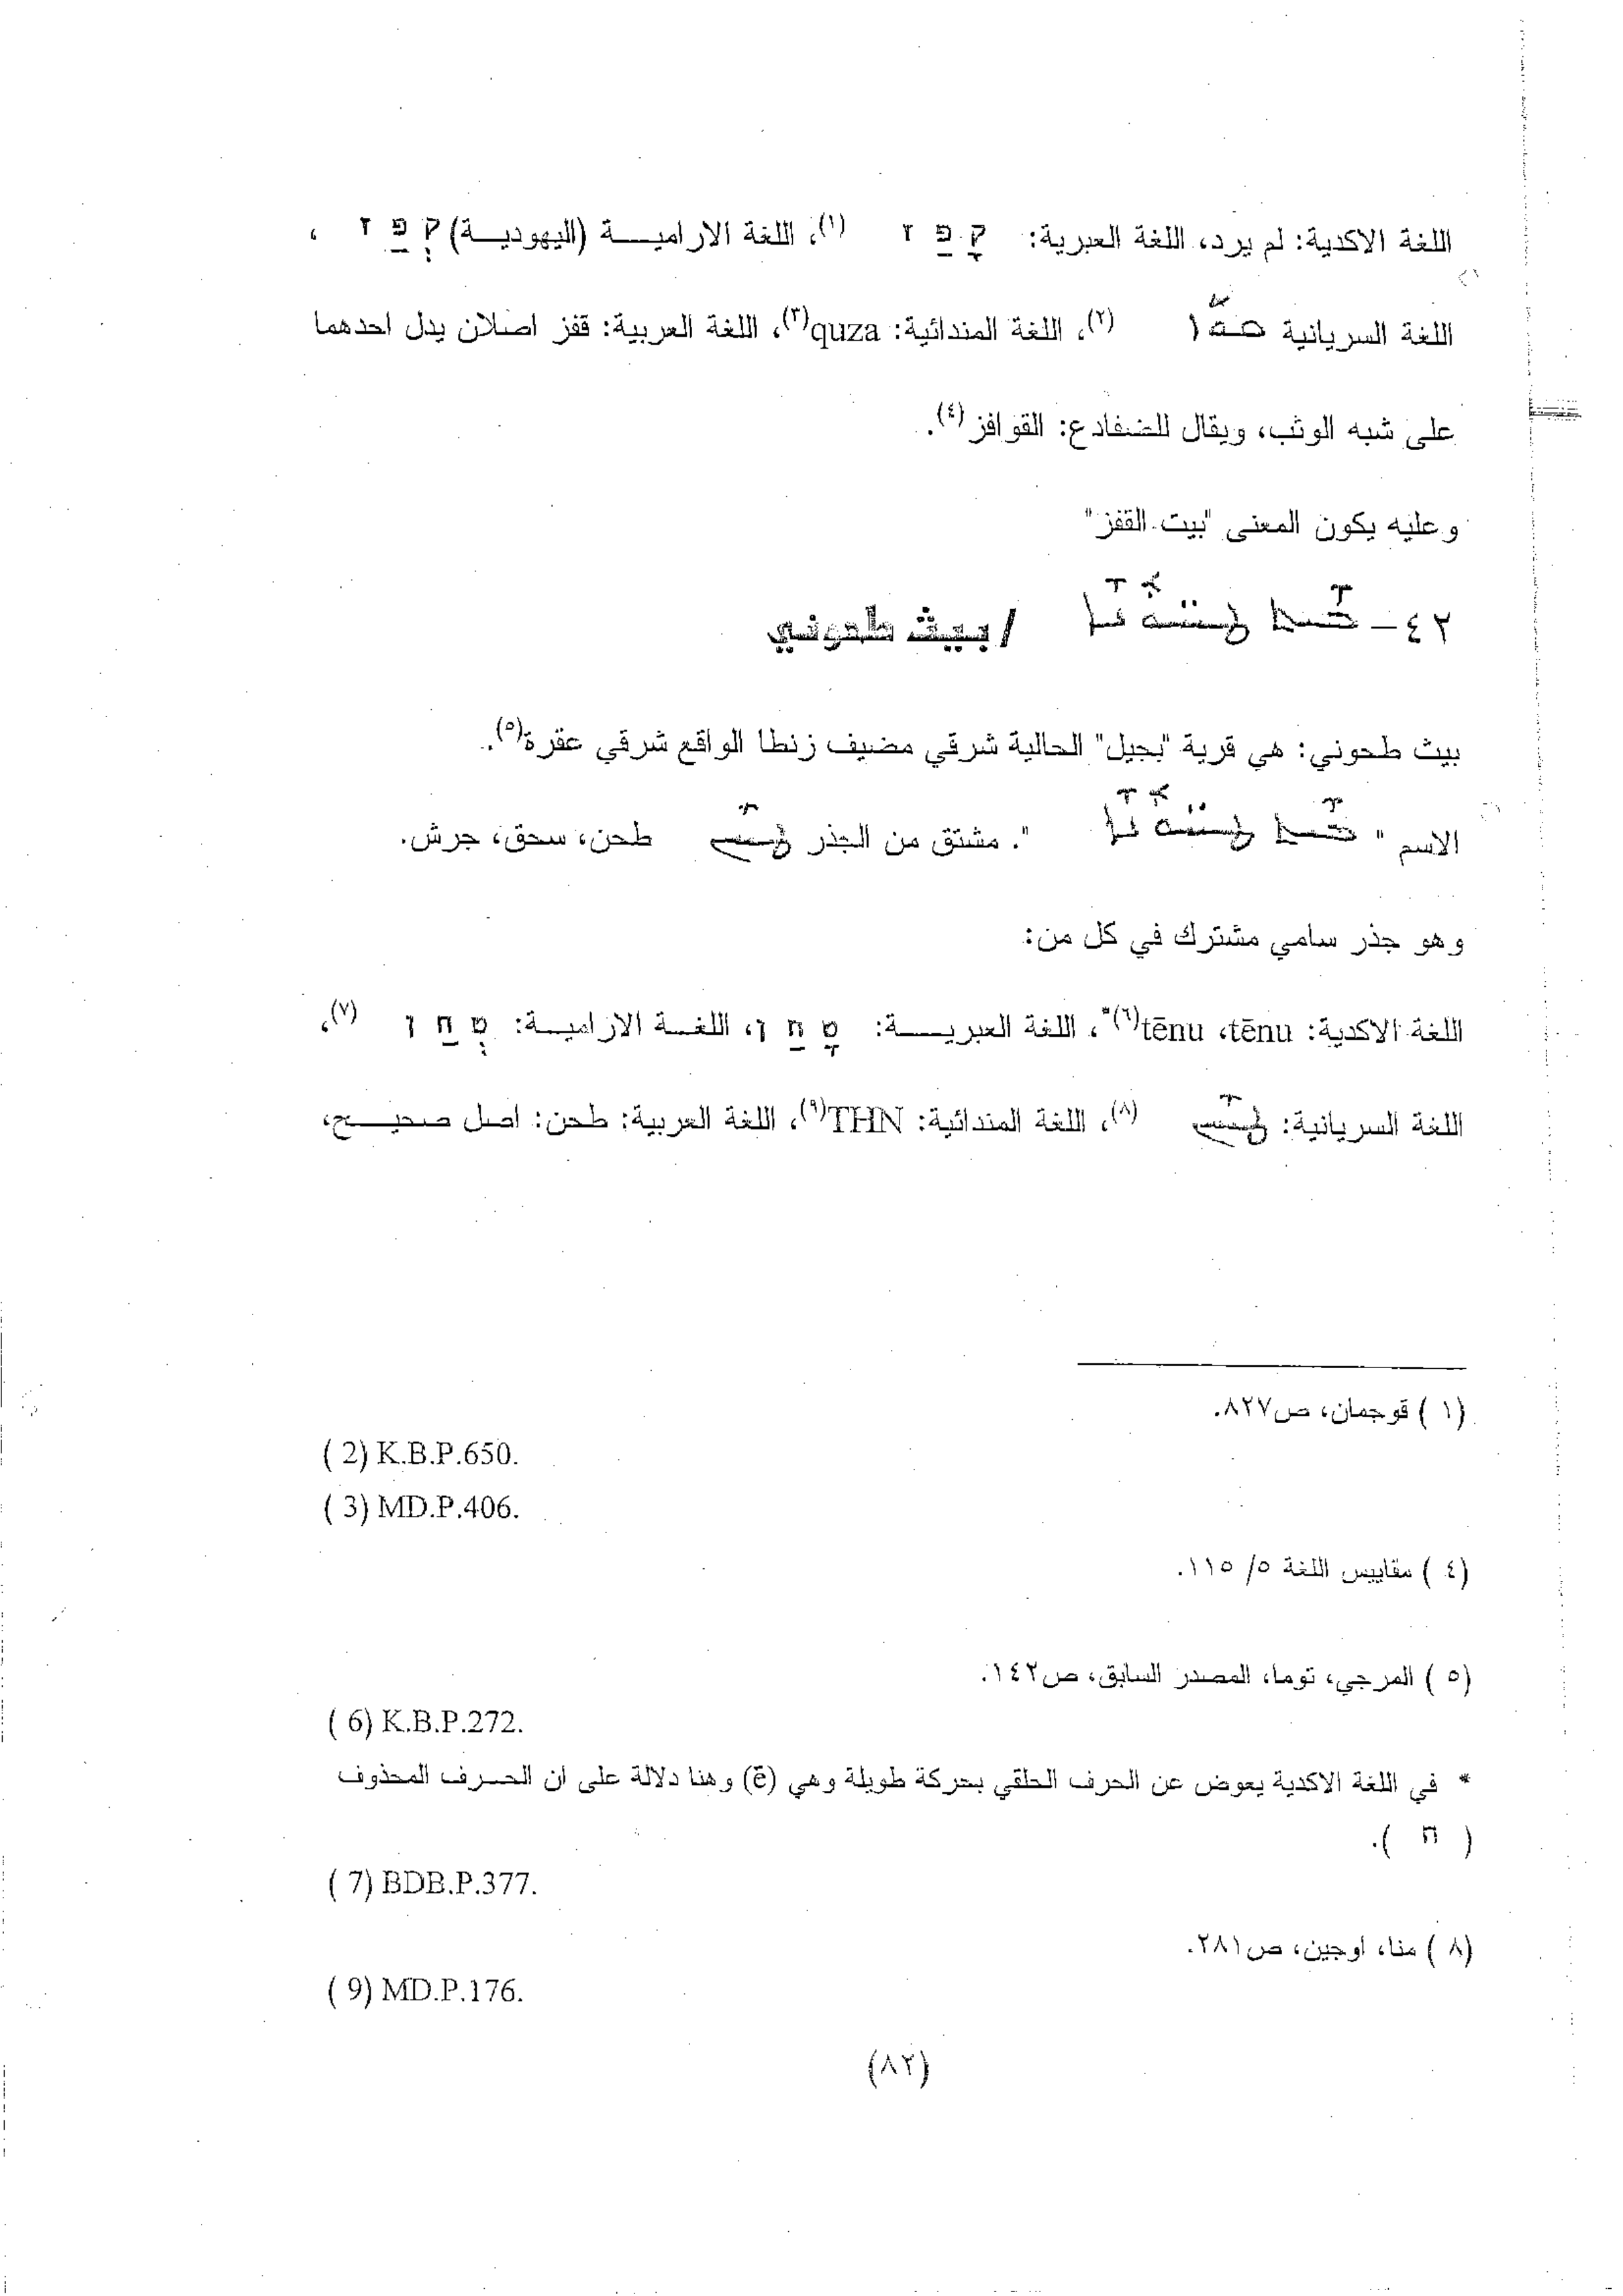 اللغة الاكدية: لم يرد، اللغة العبرية: קָפַז (١)، اللغة الاراميـــة (اليهوديــة) קְפַז ،
اللغة السريانية (٢)، اللغة المندائية: quza(٣)، اللغة العربية: قفز اصلان يدل احدهما
على شبه الوثب، ويقال للضفادع: القوافز(٤).
وعليه يكون المعنى "بيت القفز"
٤٢- / بيث طحوني
بيث طحوني: هي قرية "بجيل" الحالية شرقي مضيف زنطا الواقع شرقي عقرة(٥).
الاسم " ". مشتق من الجذر طحن، سحق، جرش.
وهو جذر سامي مشترك في كل من:
اللغة الاكدية: tēnu ،tēnu(٦)*، اللغة العبريـــة: טָחַן، اللغــة الاراميــة: טְחַן (٧)،
اللغة السريانية: (٨)، اللغة المندائية: THN(٩)، اللغة العربية: طحن: اصل صحيـــح،
(١ ) قوجمان، ص٨٢٧.
( 2) K.B.P.650.
( 3) MD.P.406.
(٤ ) مقاييس اللغة ٥/ ١١٥.
(٥ ) المرجي، توما، المصدر السابق، ص١٤٢.
( 6) K.B.P.272.
* في اللغة الاكدية يعوض عن الحرف الحلقي بحركة طويلة وهي (ē) وهنا دلالة على ان الحــرف المحذوف
( ח ).
( 7) BDB.P.377.
(٨ ) منا، اوجين، ص٢٨١.
( 9) MD.P.176.
(٨٢)